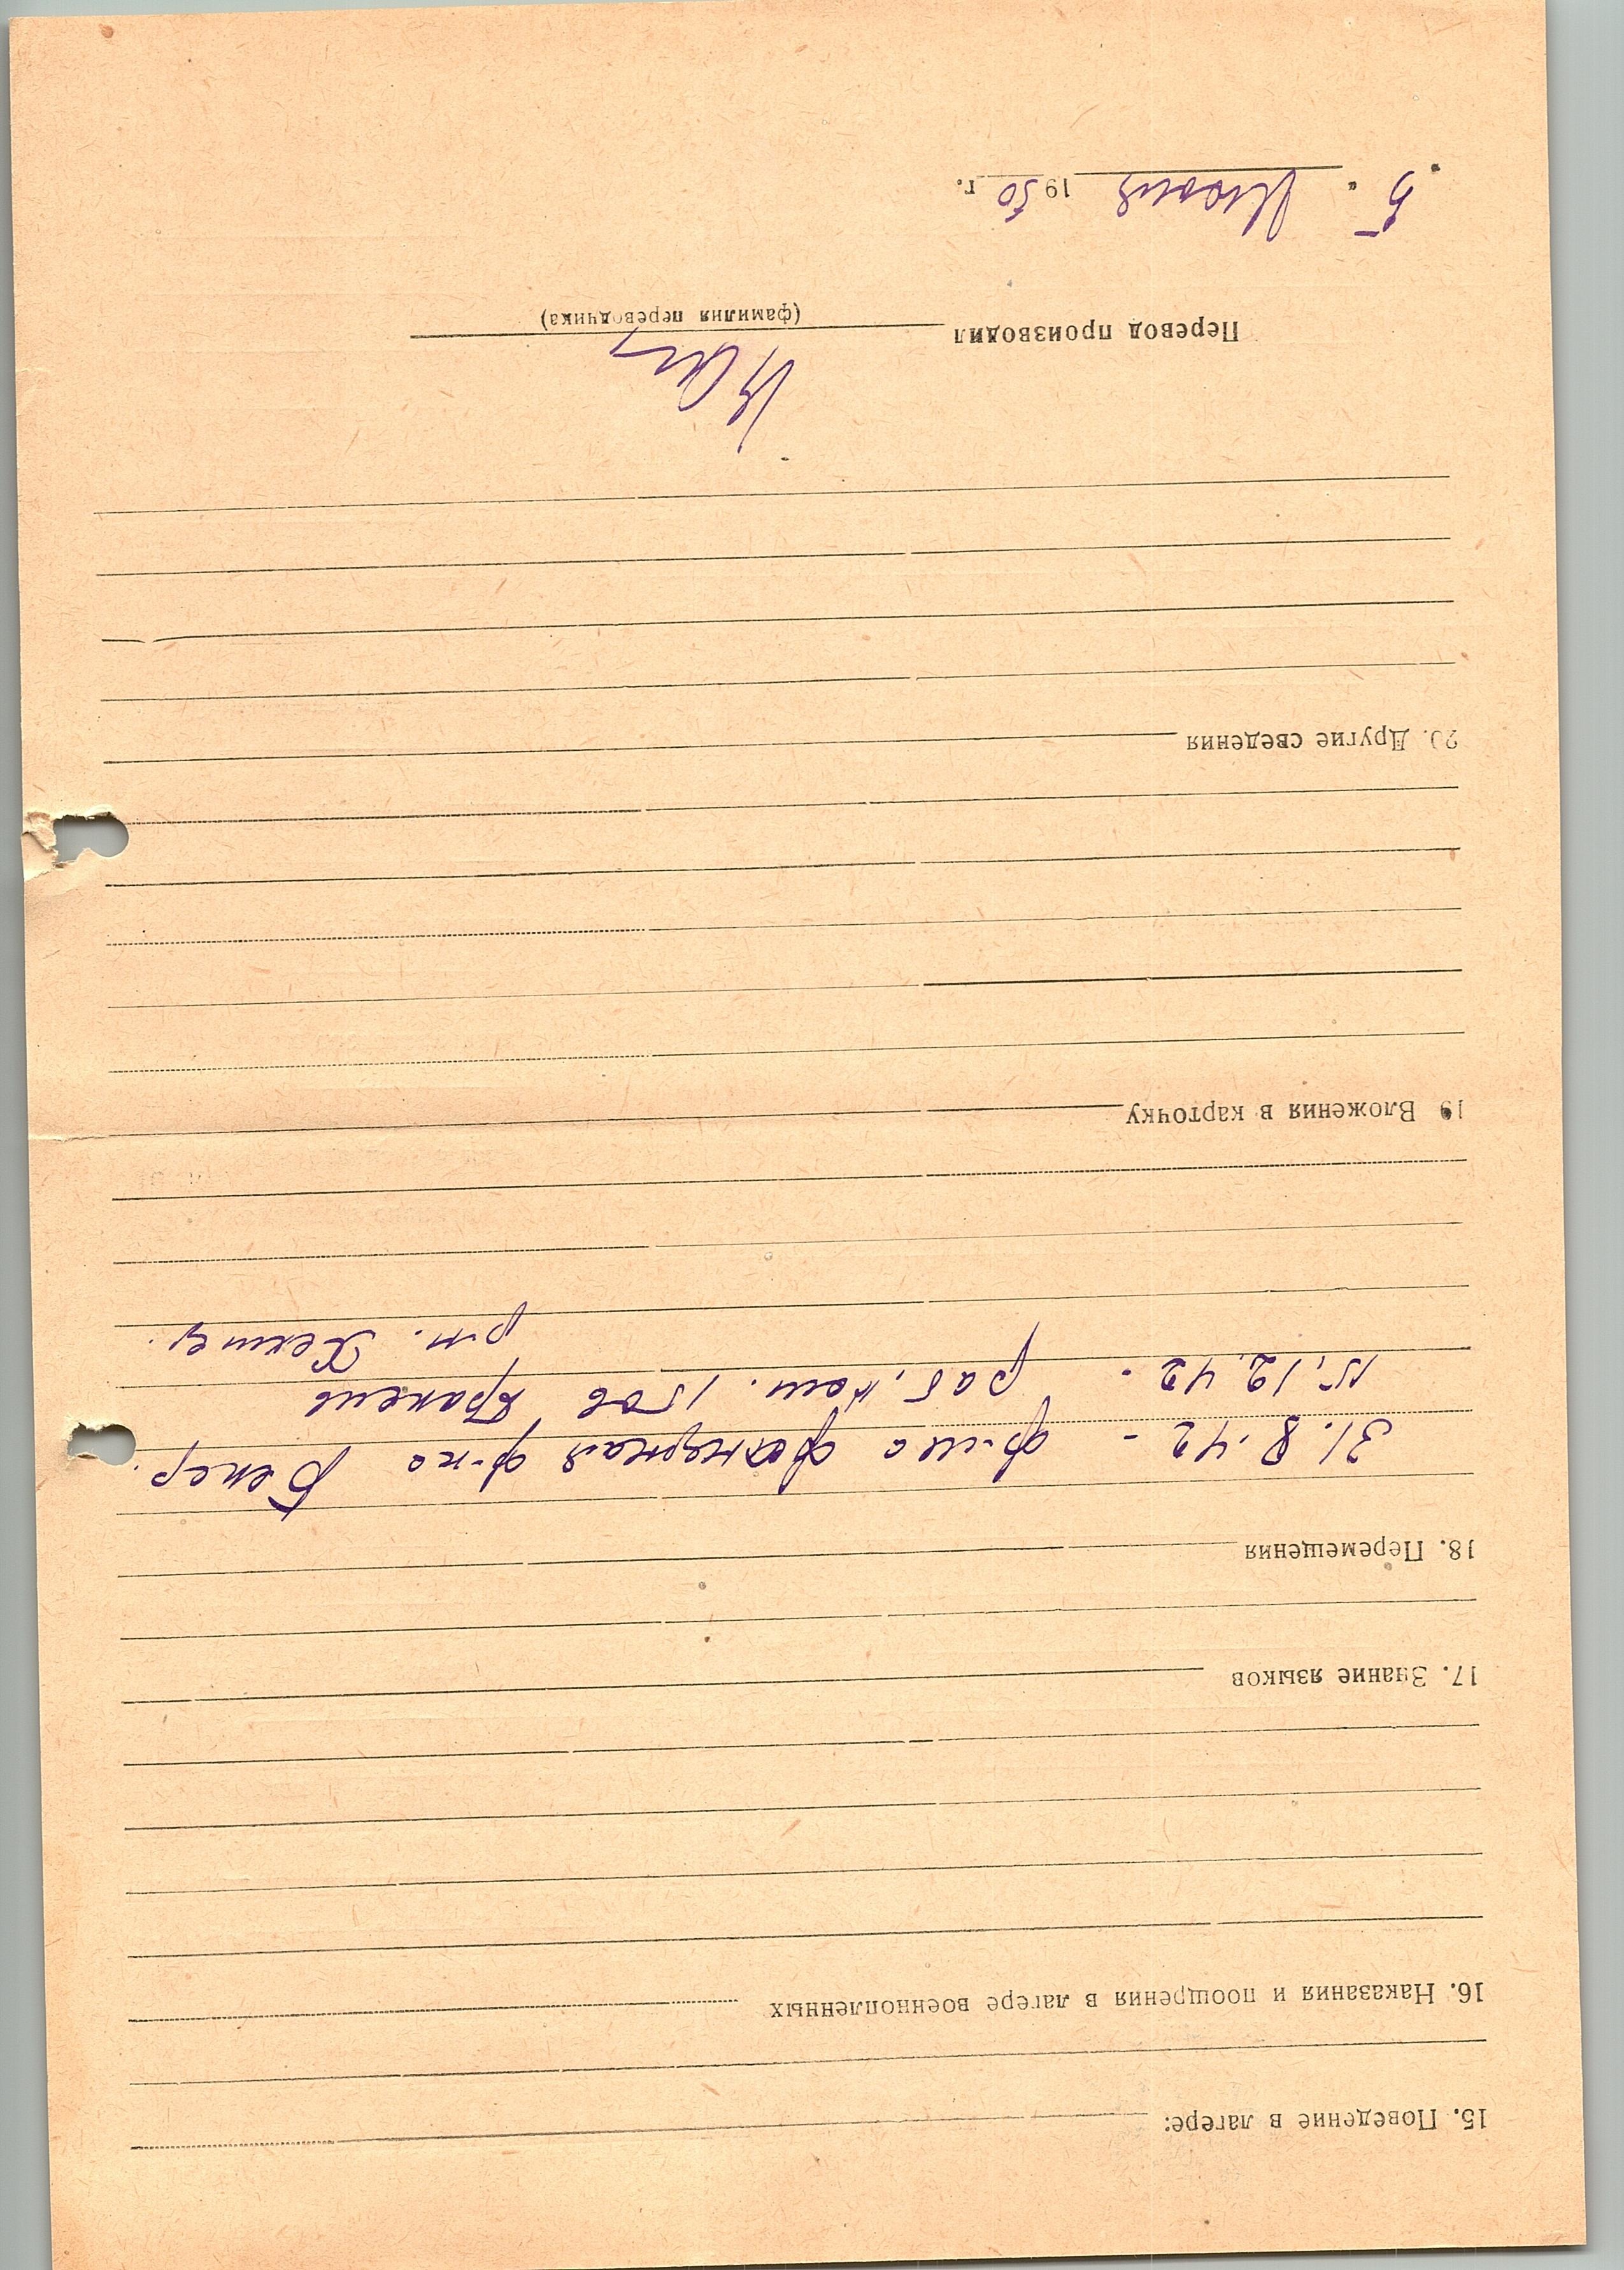 15. Поведение в лагере:
16. Наказания и поощрения в лагере военнопленных
17. Знание языков
18. Перемещения
31.8.42 - ф-ка Бекер.
15.12.42 - раб. ком. 1506
р-н. Хемниц.
19 Вложения в карточку
20. Другие сведения
Перевод производил
(фамилия переводчика)
„5“ Июня 1950 г.